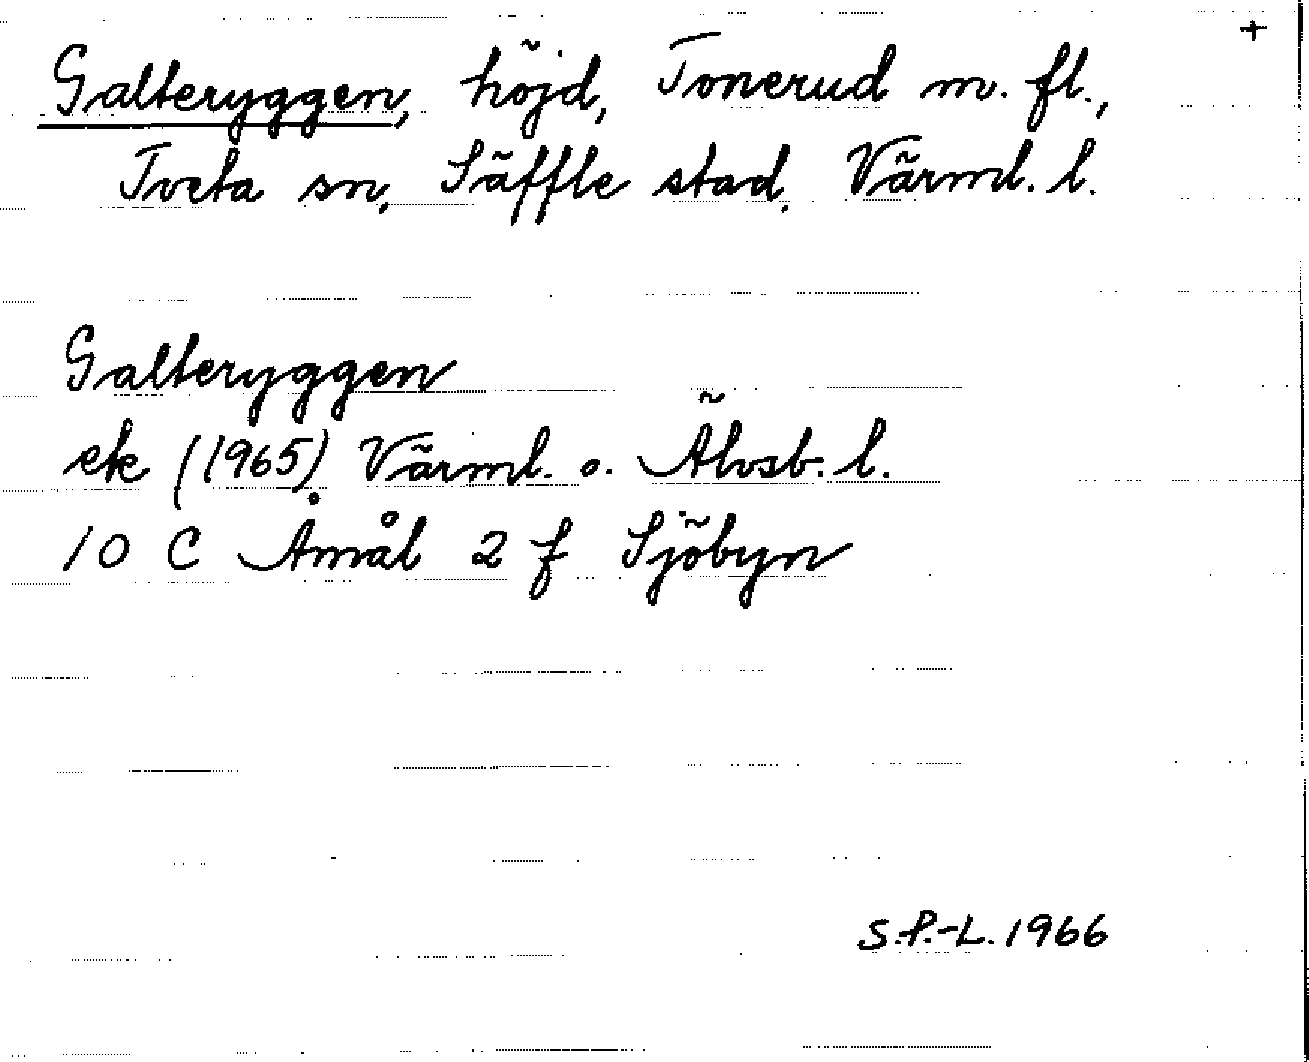 +
Galteryggen, höjd, Tonerud m. fl.,
Tveta sn, Säffle stad, Värml. l.
Galteryggen
ek (1965) Värml. o. Älvsb. l.
10 C Åmål 2 f Sjöbyn
S.P.-L. 1966